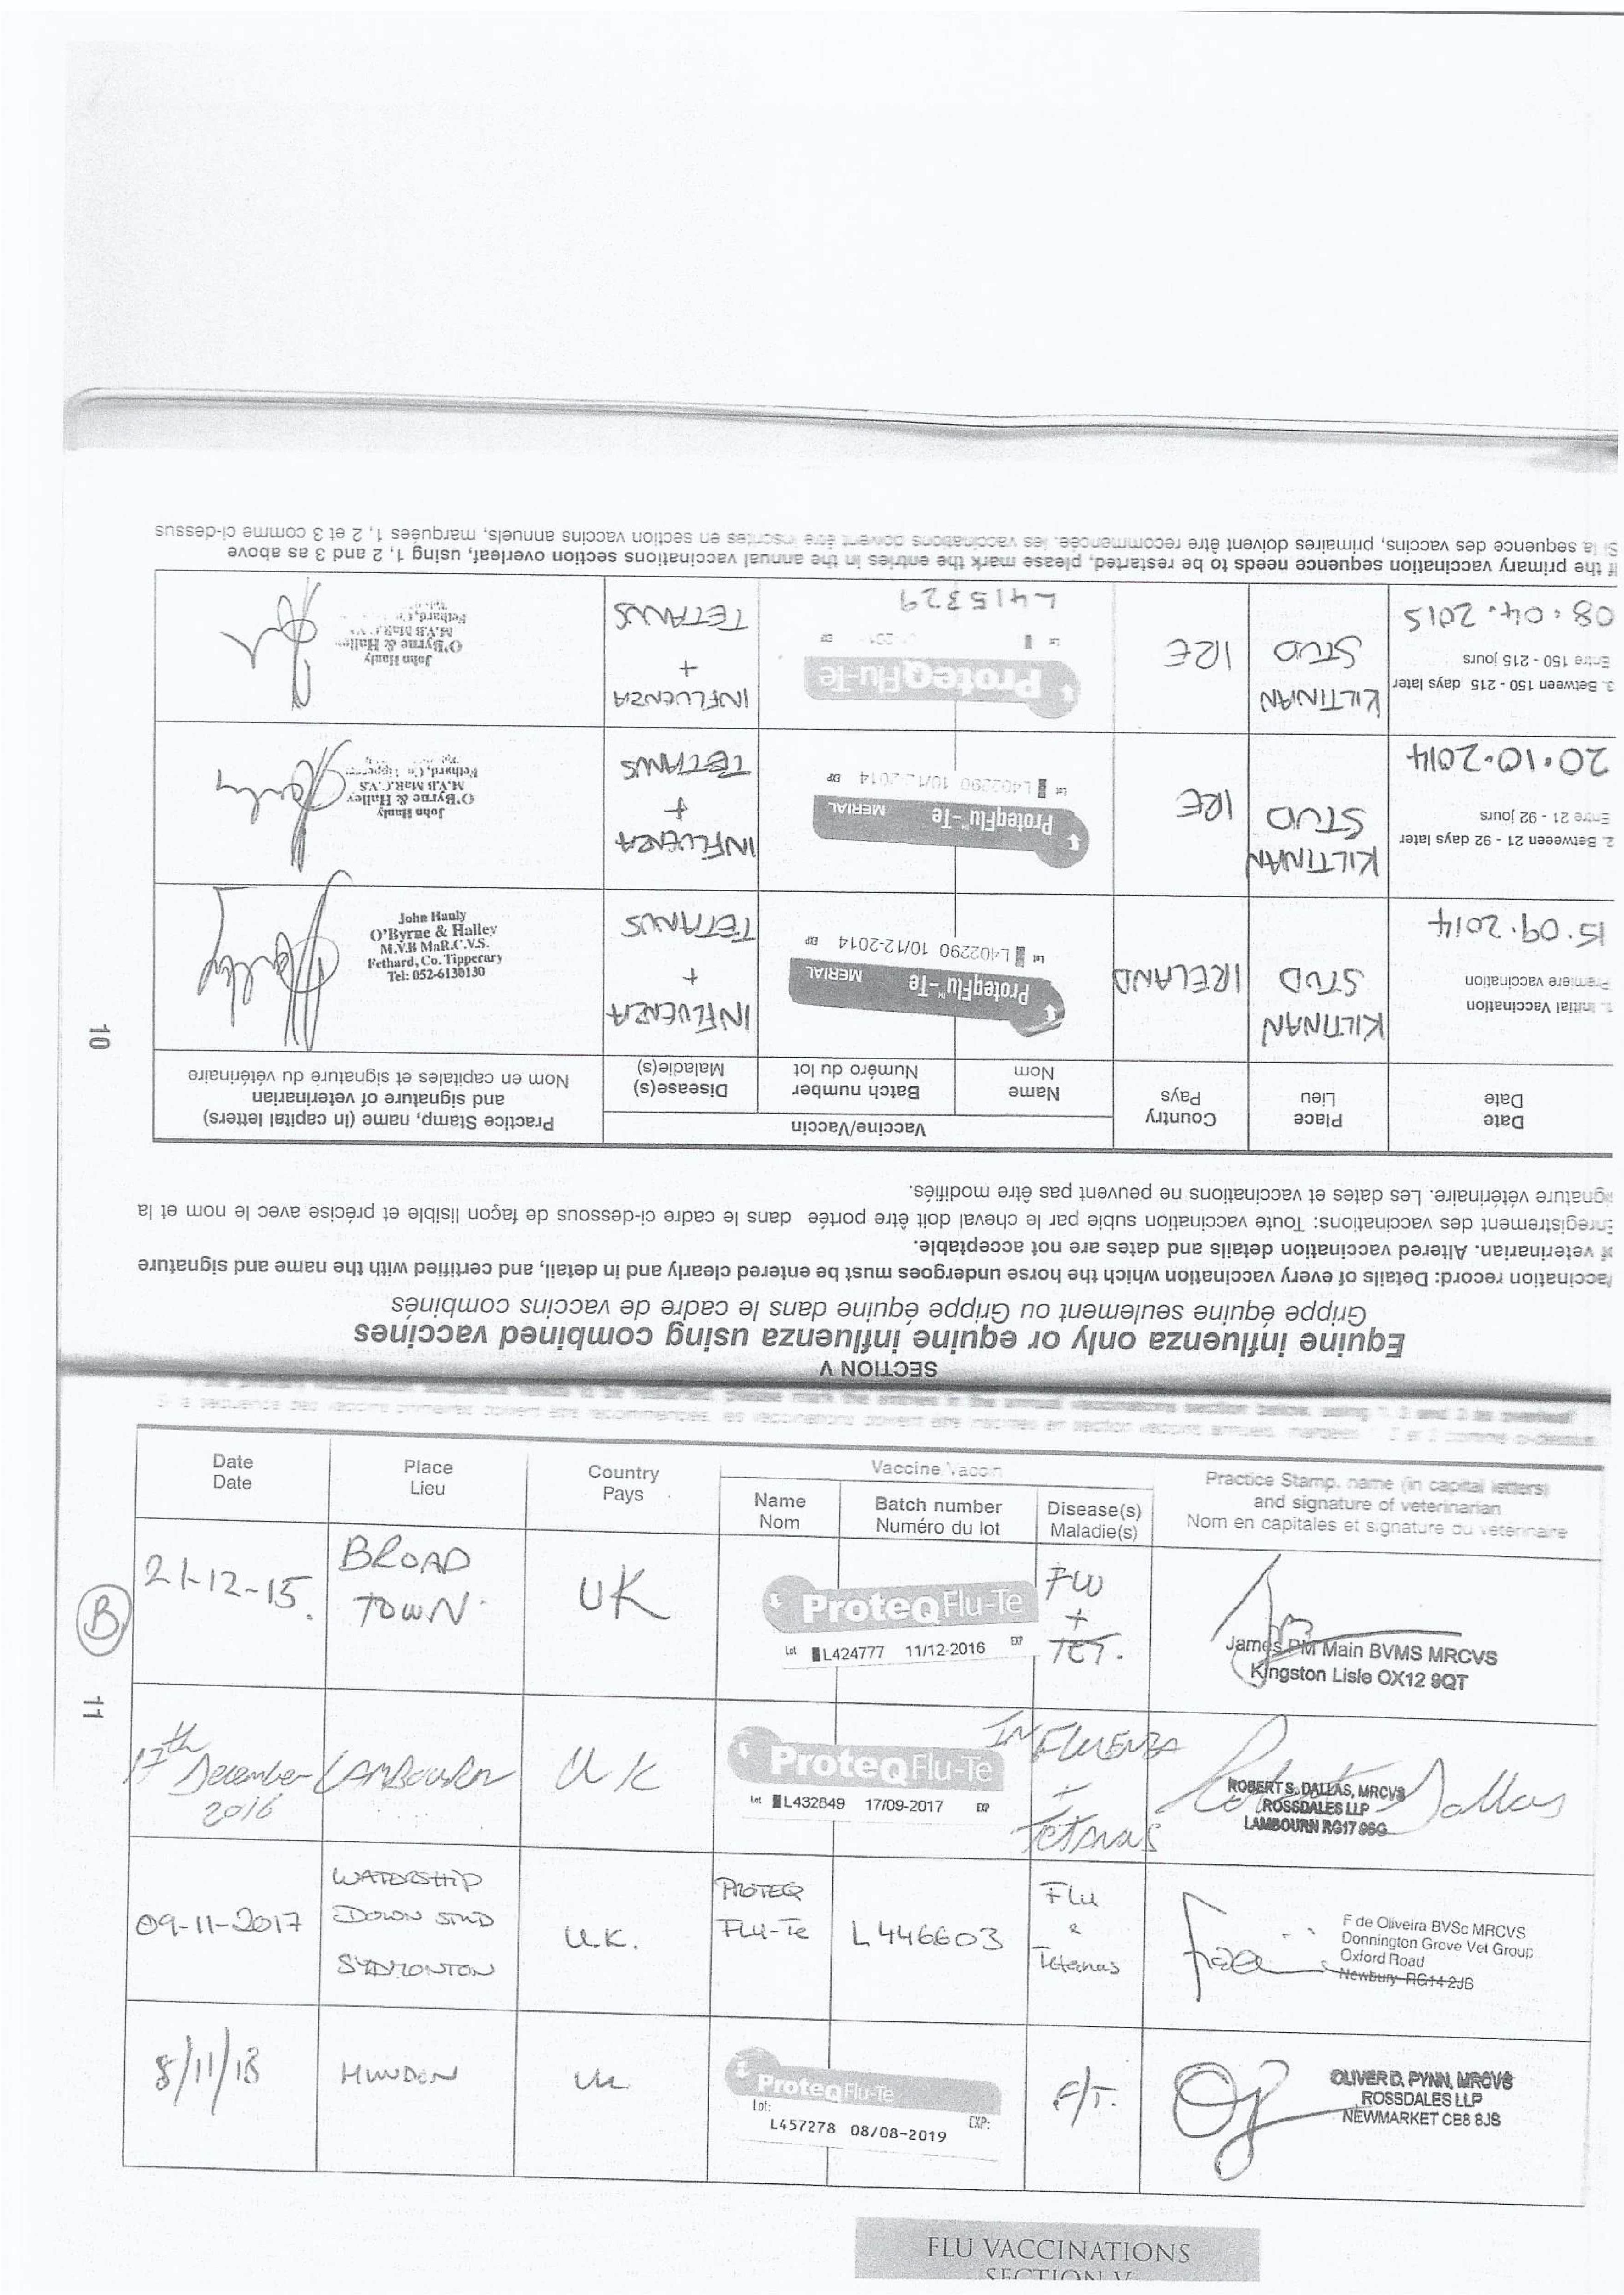 SECTION V
Equine influenza only or equine influenza using combined vaccines
Grippe équine seulement ou Grippe équine dans le cadre de vaccins combinés
Vaccination record: Details of every vaccination which the horse undergoes must be entered clearly and in detail, and certified with the name and signature
of veterinarian. Altered vaccination details and dates are not acceptable.
Enregistrement des vaccinations: Toute vaccination subie par le cheval doit être portée dans le cadre ci-dessous de façon lisible et précise avec le nom et la
signature vétérinaire. Les dates et vaccinations ne peuvent pas être modifiés.
Date
Date
Place
Lieu
Country
Pays
Vaccine/Vaccin
Name
Nom
Batch number
Numéro du lot
Disease(s)
Maladie(s)
Practice Stamp, name (in capital letters)
and signature of veterinarian
Nom en capitales et signature du vétérinaire
1. Initial Vaccination
Première vaccination
15.09.2014
KILTINAN
STUD
IRELAND
ProteqFlu™-Te MERIAL
Lot L402290 10/12-2014 EXP
INFLUENZA
+
TETANUS
John Hanly
O'Byrne & Halley
M.V.B MaR.C.V.S.
Fethard, Co. Tipperary
Tel: 052-6130130
2. Betweeen 21 - 92 days later
Entre 21 - 92 jours
20.10.2014
KILTINAN
STUD
IRE
ProteqFlu™-Te MERIAL
Lot L402290 10/12-2014 EXP
INFLUENZA
+
TETANUS
John Hanly
O'Byrne & Halley
M.V.B MaR.C.V.S
Fethard, Co. Tipperary
3. Between 150 - 215 days later
Entre 150 - 215 jours
08.04.2015
KILTINAN
STUD
IRE
ProteqFlu-Te
Lot EXP
L415329
INFLUENZA
+
TETANUS
John Hanly
O'Byrne & Halley
M.V.B MaR.C.V.S
Fethard, Co.
If the primary vaccination sequence needs to be restarted, please mark the entries in the annual vaccinations section overleaf, using 1, 2 and 3 as above
Si la sequence des vaccins, primaires doivent être recommencée, les vaccinations doivent être inscrites en section vaccins annuels, marquées 1, 2 et 3 comme ci-dessus
10
please mark the entries in the annual vaccinations section below, using 1, 2 and 3 as overleaf
Si la sequence des vaccins primaires doivent être recommencée, les vaccinations doivent être inscrites en section vaccins annuels, marquées 1, 2 et 3 comme ci-dessus
Date
Date
Place
Lieu
Country
Pays
Vaccine/Vaccin
Name
Nom
Batch number
Numéro du lot
Disease(s)
Maladie(s)
Practice Stamp, name (in capital letters)
and signature of veterinarian
Nom en capitales et signature du vétérinaire
B
11
21-12-15.
BROAD
TOWN
UK
ProteqFlu-Te
Lot L424777 11/12-2016 EXP
FLU
+
TET.
James PM Main BVMS MRCVS
Kingston Lisle OX12 9QT
17th
December
2016
LAMBOURN
UK
ProteqFlu-Te
Lot L432849 17/09-2017 EXP
INFLUENZA
+
Tetnas
Robert Dallas
ROBERT S. DALLAS, MRCVS
ROSSDALES LLP
LAMBOURN RG17
09-11-2017
WATERSHIP
DOWN STUD
SYDMONTON
U.K.
PROTEQ
FLU-Te
L446603
Flu
&
Tetanus
F de Oliveira BVSc MRCVS
Donnington Grove Vet Group
Oxford Road
Newbury RG14 2JB
8/11/18
HUNDON
UK
ProteqFlu-Te
Lot: EXP:
L457278 08/08-2019
F/T.
OLIVER D. PYNN, MRCVS
ROSSDALES LLP
NEWMARKET CB8 8JS
FLU VACCINATIONS
SECTION V